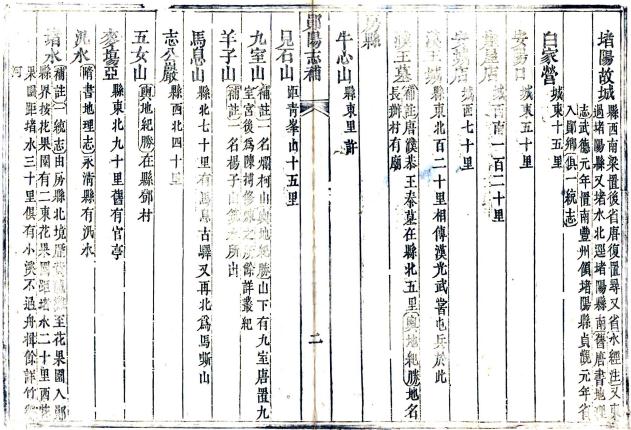 堵陽故城
縣西南梁置後省唐復置尋又省水經注又東
過堵陽縣又堵水北逕堵陽縣南舊唐書地理
志武德元年置南豐州領堵陽縣貞觀元年省
入鄖鄉俱一統志
白家營 城東十五里
安陽口 城東五十里
店 城西南一百二十里
安陽店 城西七十里
漢王城 縣東北百二十里相傳漢光武嘗屯兵於此
漢王墓 補註唐濮恭王泰墓在縣北五里輿地紀勝地名
長辦村有廟
房縣
牛心山 縣東里許
鄖陽志補 二
見石山 距青峯山十五里
九室山 補註一名爛柯山輿地紀勝山下有九室唐置九
室宮後為陳摶修煉之所餘詳叢紀
羊子山 補註一名楊子山
馬息山 縣北七十里有馬息古驛又再北為馬嘶山
志公巖 縣西北四十里
五女山 輿地紀勝在縣鄧村
麥場亞 縣東北九十里舊有官亭
汎水 隋書地理志永清縣有汎水
堵水 補註一統志由房縣北境 至花果園入鄖
縣界按花果園有二東花果園距堵水二十里西花
果園距堵水三十里俱有小溪不過舟楫餘詳竹
河